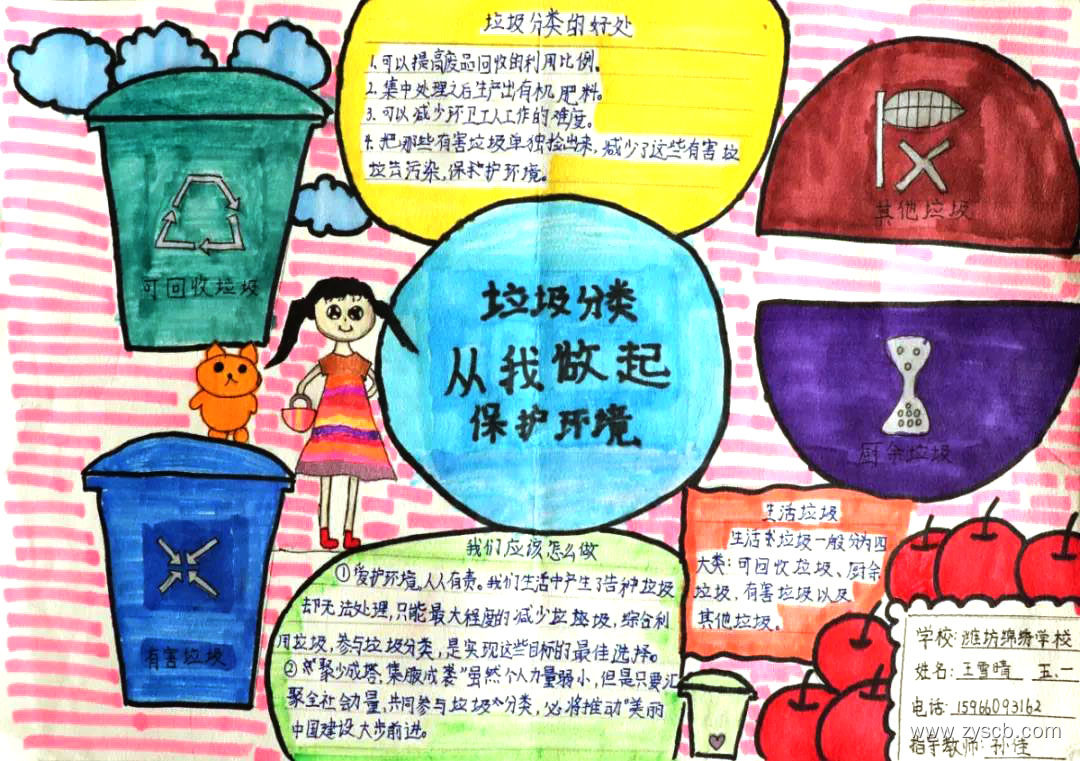 垃圾分类的好处
1.可以提高废品回收的利用比例。
2.集中处理之后生产出有机肥料。
3.可以减少环卫工人工作的难度。
4.把那些有害垃圾单独捡出来,减少了这些有害垃
圾去污染,保护环境。
可回收垃圾
其他垃圾
垃圾分类
从我做起
保护环境
厨余垃圾
有害垃圾
生活垃圾
生活垃圾一般分为四
大类:可回收垃圾、厨余
垃圾,有害垃圾以及
其他垃圾。
我们应该怎么做
①爱护环境,人人有责。我们生活中产生了各种垃圾
却无法处理,只能最大程度的减少垃圾,综合利
用垃圾,参与垃圾分类,是实现这些目标的最佳选择。
②“聚少成塔,集腋成裘”虽然个人力量弱小,但是只要汇
聚全社会力量,共同参与垃圾分类,必将推动“美丽
中国建设大步前进。
学校:潍坊绵绣学校
姓名:王雪晴 五.一
电话:15966093162
指导教师:孙佳
www.zyscb.com